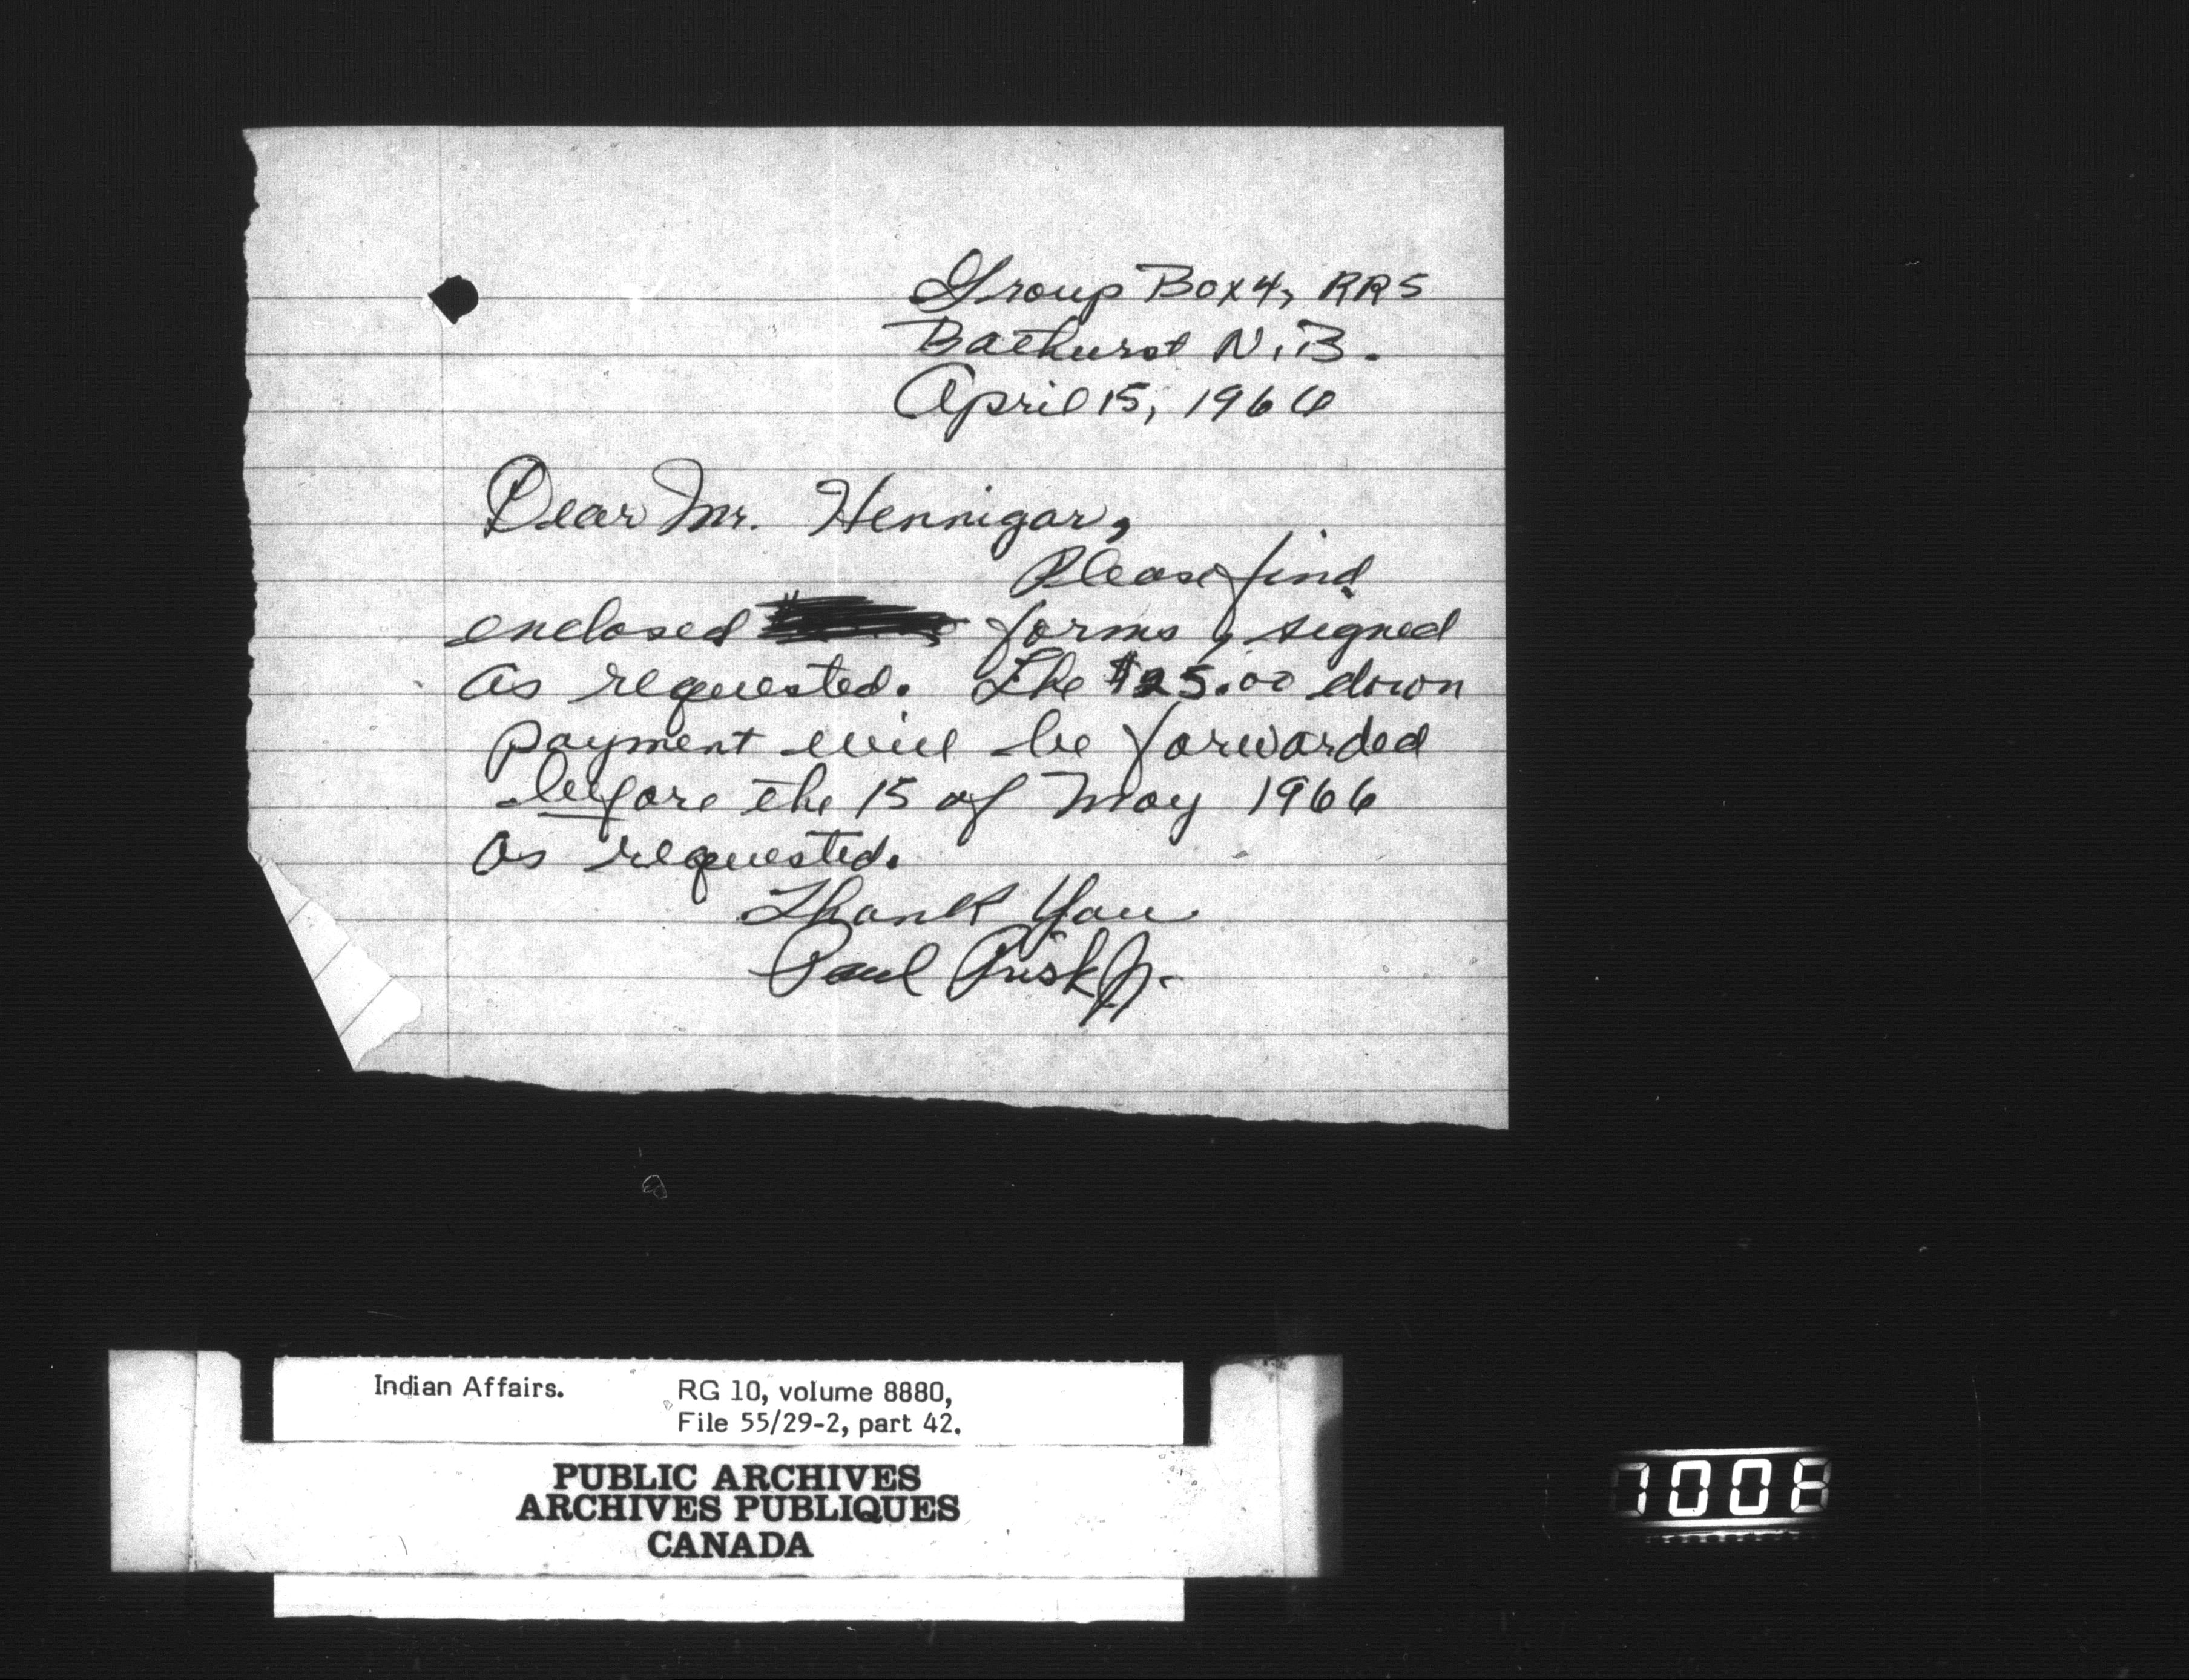 Group Box 4, RR5
Bathurst N.B.
April 15, 1966
Dear Mr. Hennigar,
Please find
enclosed forms, signed
as requested. The $25.00 down
payment will be forwarded
before the 15 of May 1966
as requested.
Thank You
Paul Prisk Jr.
Indian Affairs. RG 10, volume 8880,
File 55/29-2, part 42.
PUBLIC ARCHIVES
ARCHIVES PUBLIQUES
CANADA